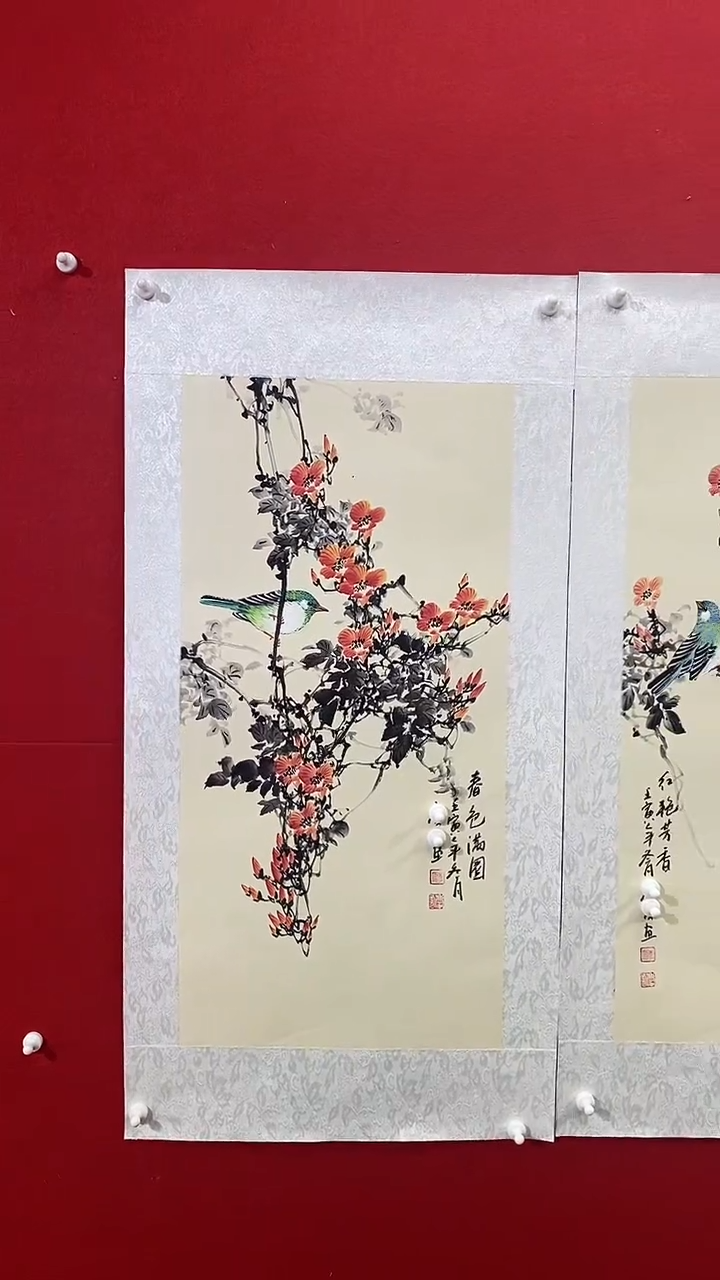 春色满园
壬寅之年冬月
画
红艳芳香
壬寅之年冬月
画